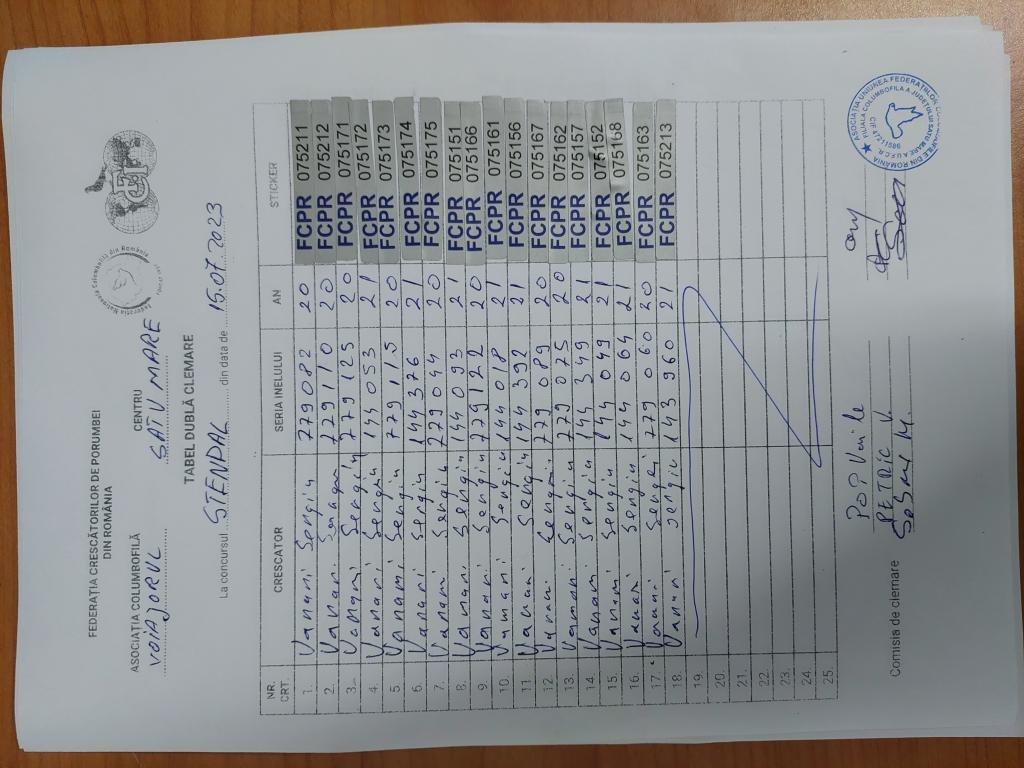 FEDERAȚIA CRESCĂTORILOR DE PORUMBEI
DIN ROMÂNIA
ASOCIAȚIA COLUMBOFILĂ
VOIAJORUL
CENTRU
SATU MARE
TABEL DUBLĂ CLEMARE
La concursul STENDAL din data de 15.07.2023
NR. CRT. CRESCATOR SERIA INELULUI AN STICKER
1. Vanari Sergiu 779082 20 FCPR 075211
2. Vanari 779110 20 FCPR 075212
3. Vanari Sergiu 779125 20 FCPR 075171
4. Vanari Sergiu 144053 21 FCPR 075172
5. Vanari Sergiu 779115 20 FCPR 075173
6. Vanari Sergiu 144376 21 FCPR 075174
7. Vanari Sergiu 779044 20 FCPR 075175
8. Vanari Sergiu 144093 21 FCPR 075151
9. Vanari Sergiu 779122 20 FCPR 075166
10. Vanari Sergiu 144018 21 FCPR 075161
11. Vanari Sergiu 144392 21 FCPR 075156
12. Vanari Sergiu 779089 20 FCPR 075167
13. Vanari Sergiu 779075 20 FCPR 075162
14. Vanari Sergiu 144349 21 FCPR 075157
15. Vanari Sergiu 144049 21 FCPR 075152
16. Vanari Sergiu 144064 21 FCPR 075168
17. Vanari Sergiu 779060 20 FCPR 075163
18. Vanari Sergiu 143960 21 FCPR 075213
19.
20.
21.
22.
23.
24.
25.
Comisia de clemare
POP Vasile
PETRIC V.
COSMA M.
ASOCIAȚIA UNIUNEA FEDERAȚIILOR COLUMBOFILE DIN ROMÂNIA
FILIALA COLUMBOFILA A JUDETULUI SATU MARE A.U.F.C.R.
CIF 47211586